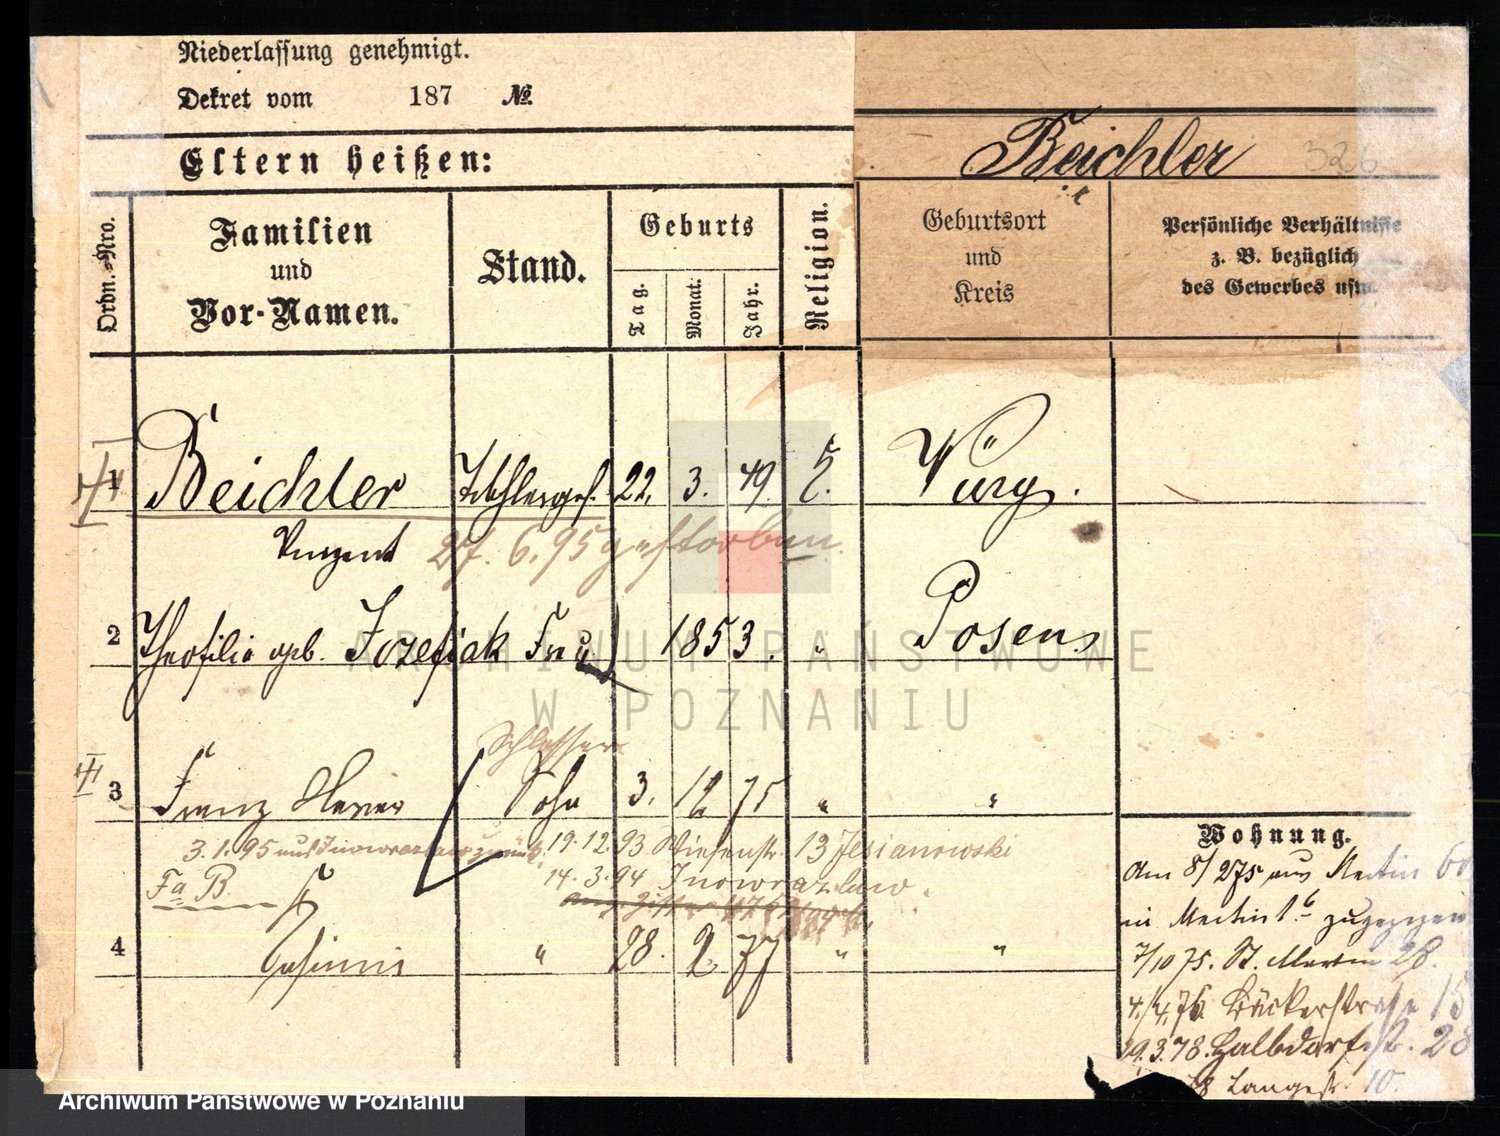 Niederlassung genehmigt.
Dekret vom 187 №
Eltern heißen:
Beichler 326
Ordn.-Nro.
Familien
und
Vor-Namen.
Stand.
Geburts
Tag.
Monat.
Jahr.
Religion.
Geburtsort
und
Kreis
Persönliche Verhältnisse
z. B. bezüglich
des Gewerbes usw.
1 Beichler Tischlerges. 22. 3. 49. Würg.
Vinzent 27. 6. 95 gestorben
2 Theofilia geb. Jozefiak Frau 1853. " Posen
Schlosser
3 Franz Sohn 3. 12 75 " "
3. 1. 95 aus Inowrazlaw zurück 19. 12. 93 Wiesenstr. 13 Jesianowski
Fa B. 14. 3. 94 Inowrazlaw.
4 Casimir " 28. 2 77 " "
Wohnung.
Am 8/2 75 aus Martin 60
in Martin zugezogen
7/10 75. St. Martin 28.
4./4. 76 Bäckerstraße 15
29. 3. 78. Halbdorfstr. 28
Langestr. 10.
ARCHIWUM PAŃSTWOWE
W POZNANIU
Archiwum Państwowe w Poznaniu